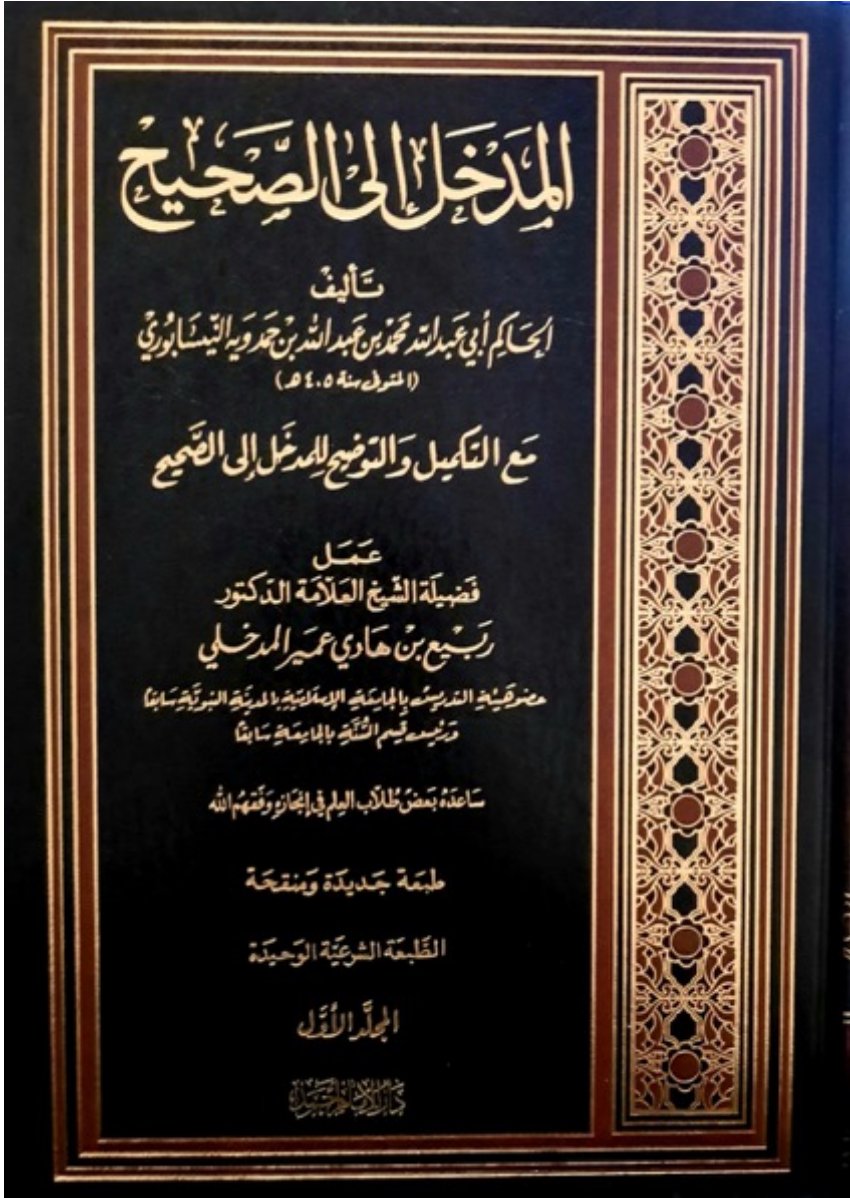 المَدخَل إلى الصَّحيح
تَأليفْ
الحَاكِم أبي عَبد الله محمَّد بن عَبد الله بن حمَدويه النَّيسَابُوريْ
(المتوفى سنة ٤٠٥ هـ)
مَع التكميل وَالتوَضيح لِلمدخَل إلى الصَّحيح
عَمَل
فَضيلَة الشّيخ العَلّامَة الدّكتور
رَبيْع بنْ هَادي عميَر المدخلي
عضو هَيئة التدريسْ بالجامعَة الإسلاميّة بالمدينَة النبويَّة سَابقاً
وَرئيسْ قِسم السُّنَّة بالجامِعَة سَابقاً
سَاعدَهُ بَعضُ طُلّاب العِلم في إنجازِهِ وَفّقَهُم الله
طبعَة جَديدَة وَمنقحَة
الطَّبعَة الشرعيَّة الوَحيدَة
المجلَّد الأوَّل
دَار الإمَام أحمَد